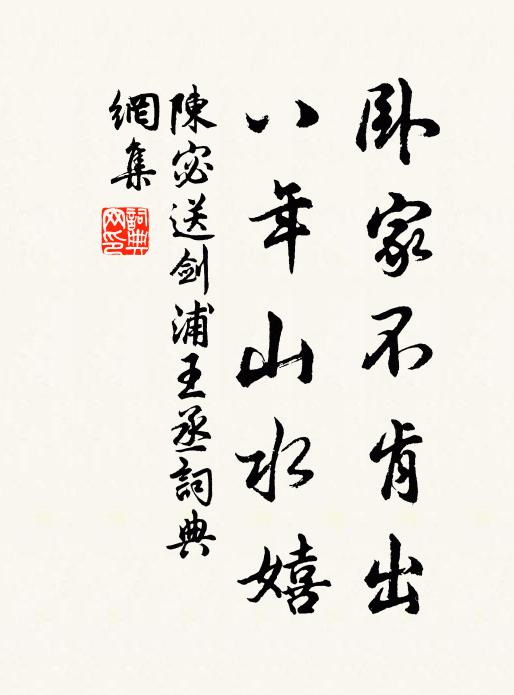 卧家不肯出
八年山水嬉
陳宓送劍浦王丞詞典
網集
詞典網印